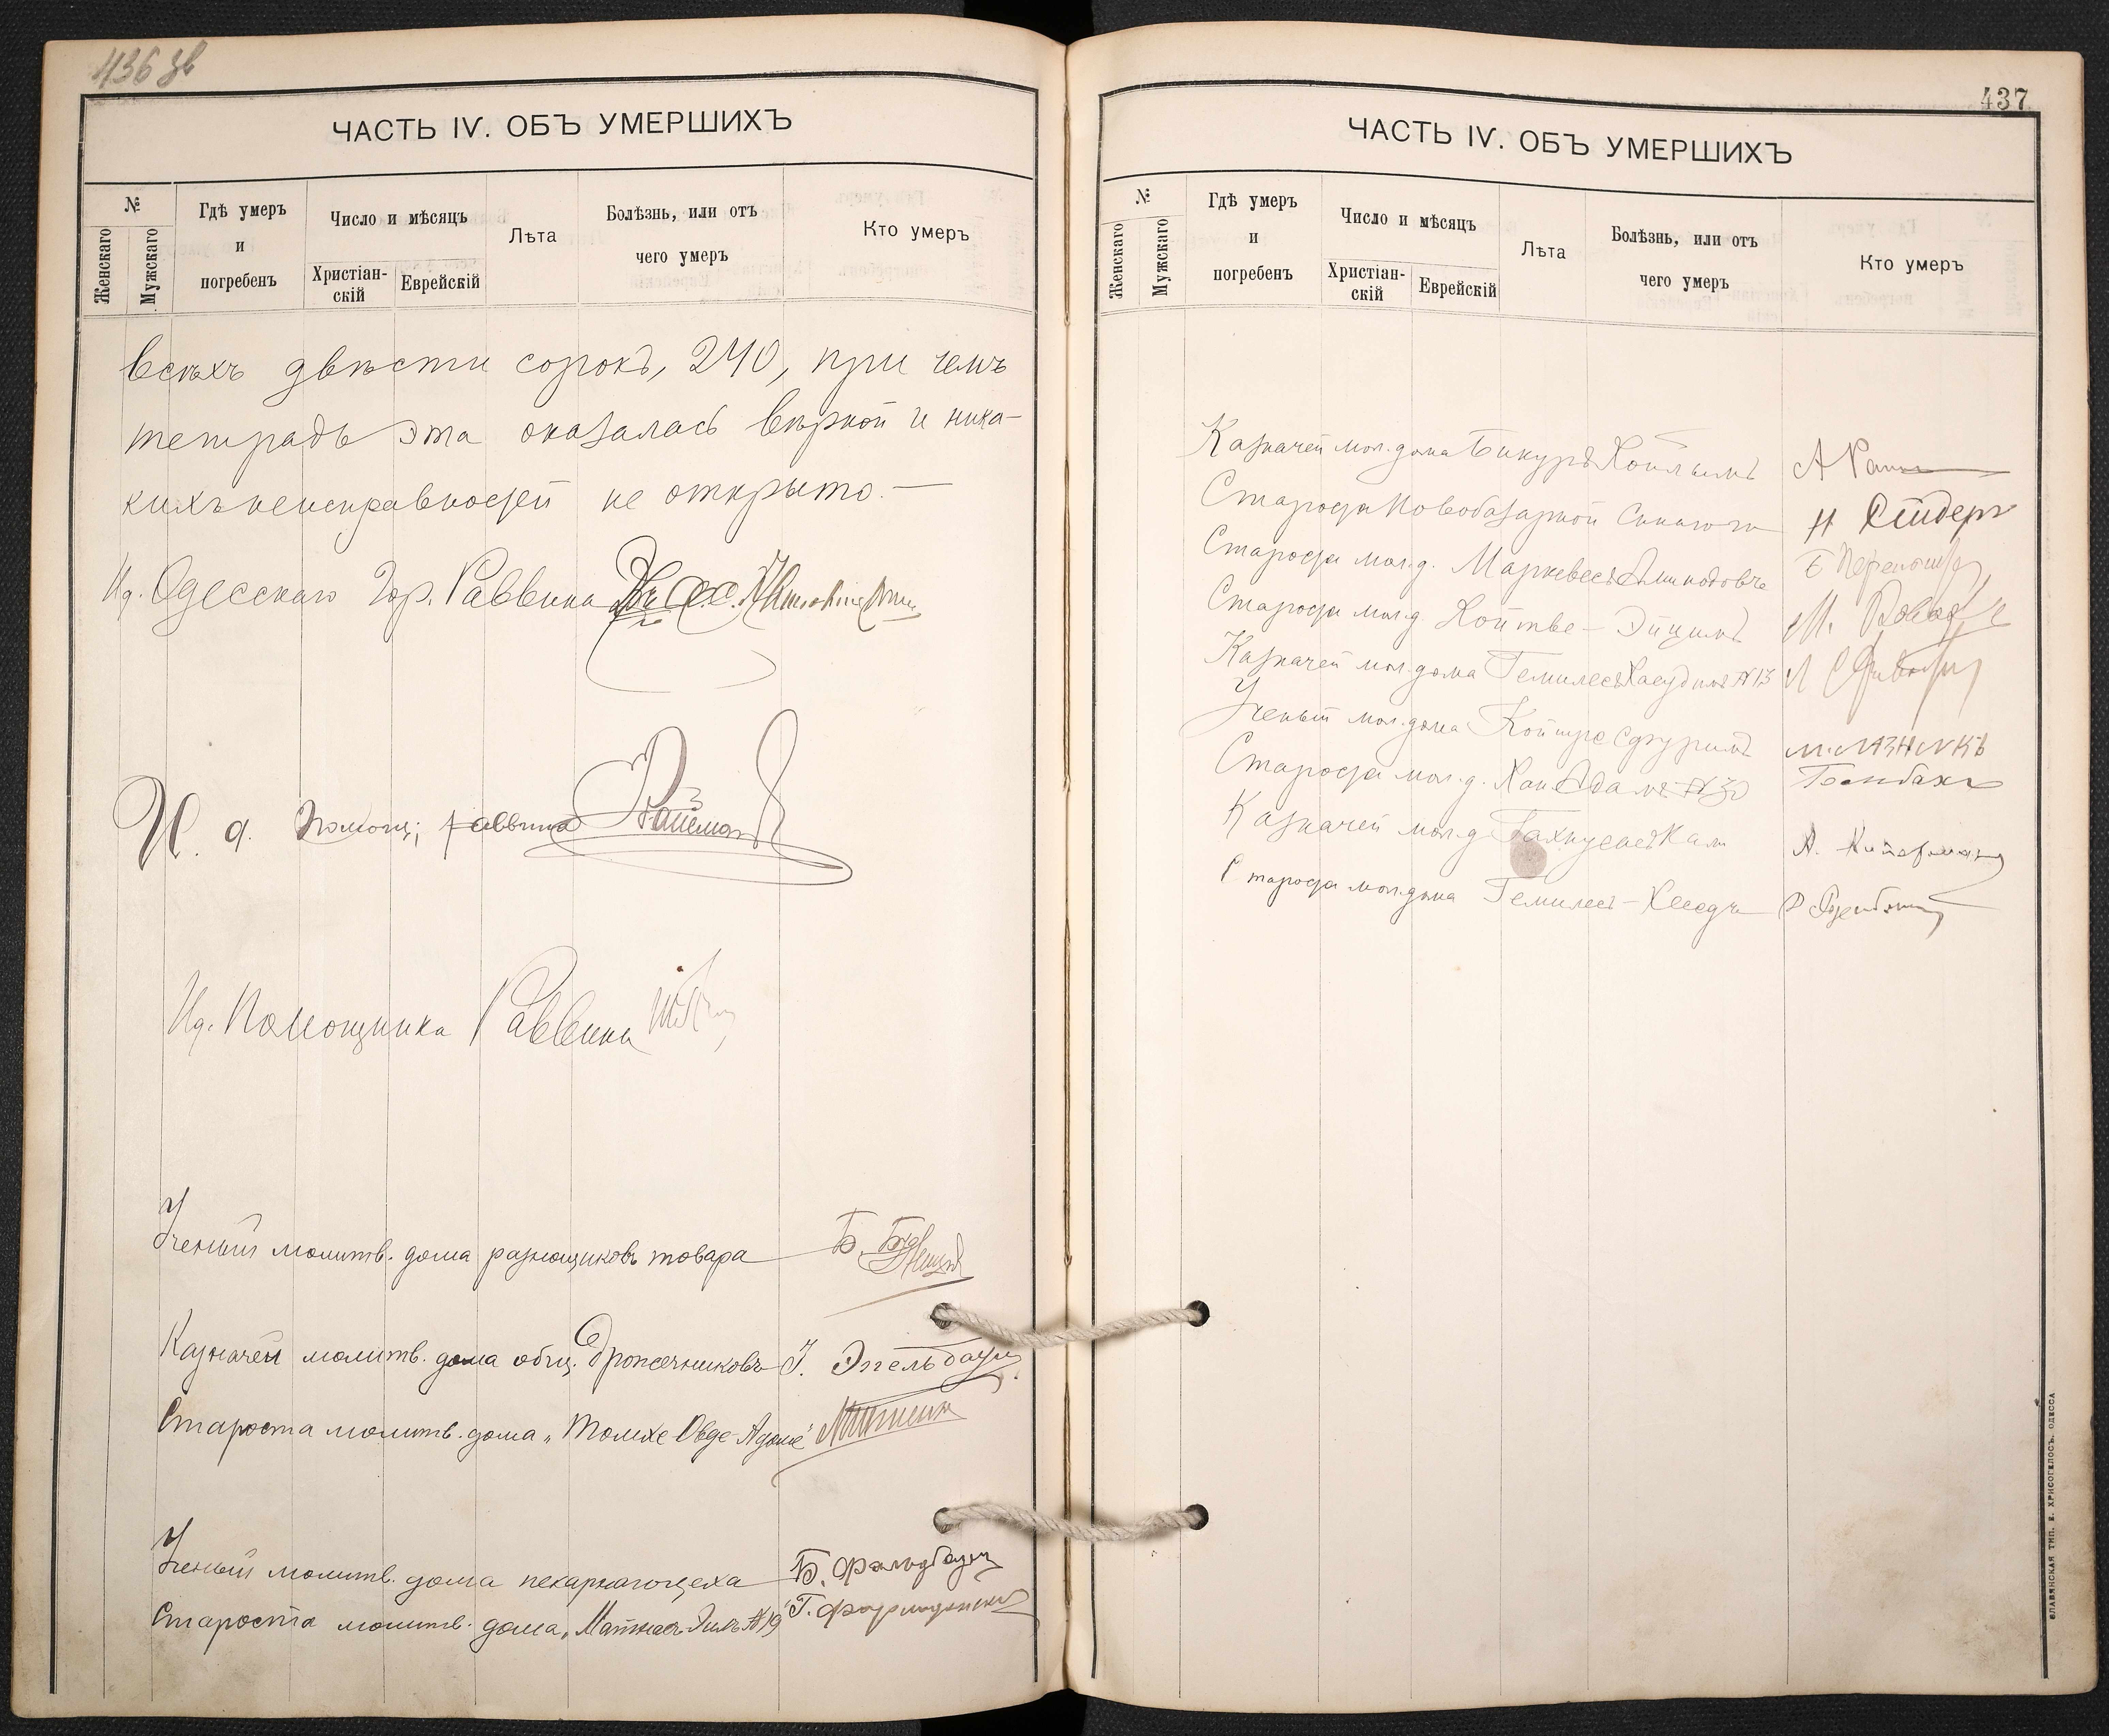 436 зв
ЧАСТЬ IV. ОБЪ УМЕРШИХЪ
№
Женскаго
Мужскаго
Гдѣ умеръ
и
погребенъ
Число и мѣсяцъ
Христіан-
скій
Еврейскій
Лѣта
Болѣзнь, или отъ
чего умеръ
Кто умеръ
всѣхъ двѣсти сорокъ, 240, при чемъ
тетрадь эта оказалась вѣрной и ника-
кихъ неисправностей не открыто. —
Ид. Одесскаго Гор. Раввина
И. д. Помощ; раввина
Ид. Помощника Раввина
Ученый молитв. дома разнощиковъ товара Б.
Казначей молитв. дома общ. Дрожечниковъ І. Эпельбаум
Староста молитв. дома „Томхе-Овде-Адоме"
Ученый молитв. дома пекарнаго цеха Б.
Староста молитв. дома „ №19 Г.
437
ЧАСТЬ IV. ОБЪ УМЕРШИХЪ
№
Женскаго
Мужскаго
Гдѣ умеръ
и
погребенъ
Число и мѣсяцъ
Христіан-
скій
Еврейскій
Лѣта
Болѣзнь, или отъ
чего умеръ
Кто умеръ
Казначей мол. дома Бикуръ Хойлимъ А
Староста Новобазарной Синагоги Н
Староста мол. д. Маркевесъ Аминодовъ
Староста мол. д Хойтве-Эйцимъ М.
Казначей мол. дома Гемилесъ Хасудимъ №13
Ученый мол. дома Койшре Сфуримъ М.
Староста мол. д. Хаи Адамъ
Казначей мол. д Гахнусасъ Кало А.
Староста мол. дома Гемилесъ-Хеседъ
СЛАВЯНСКАЯ ТИП. Е. ХРИСОГЕЛОСЪ. ОДЕССА